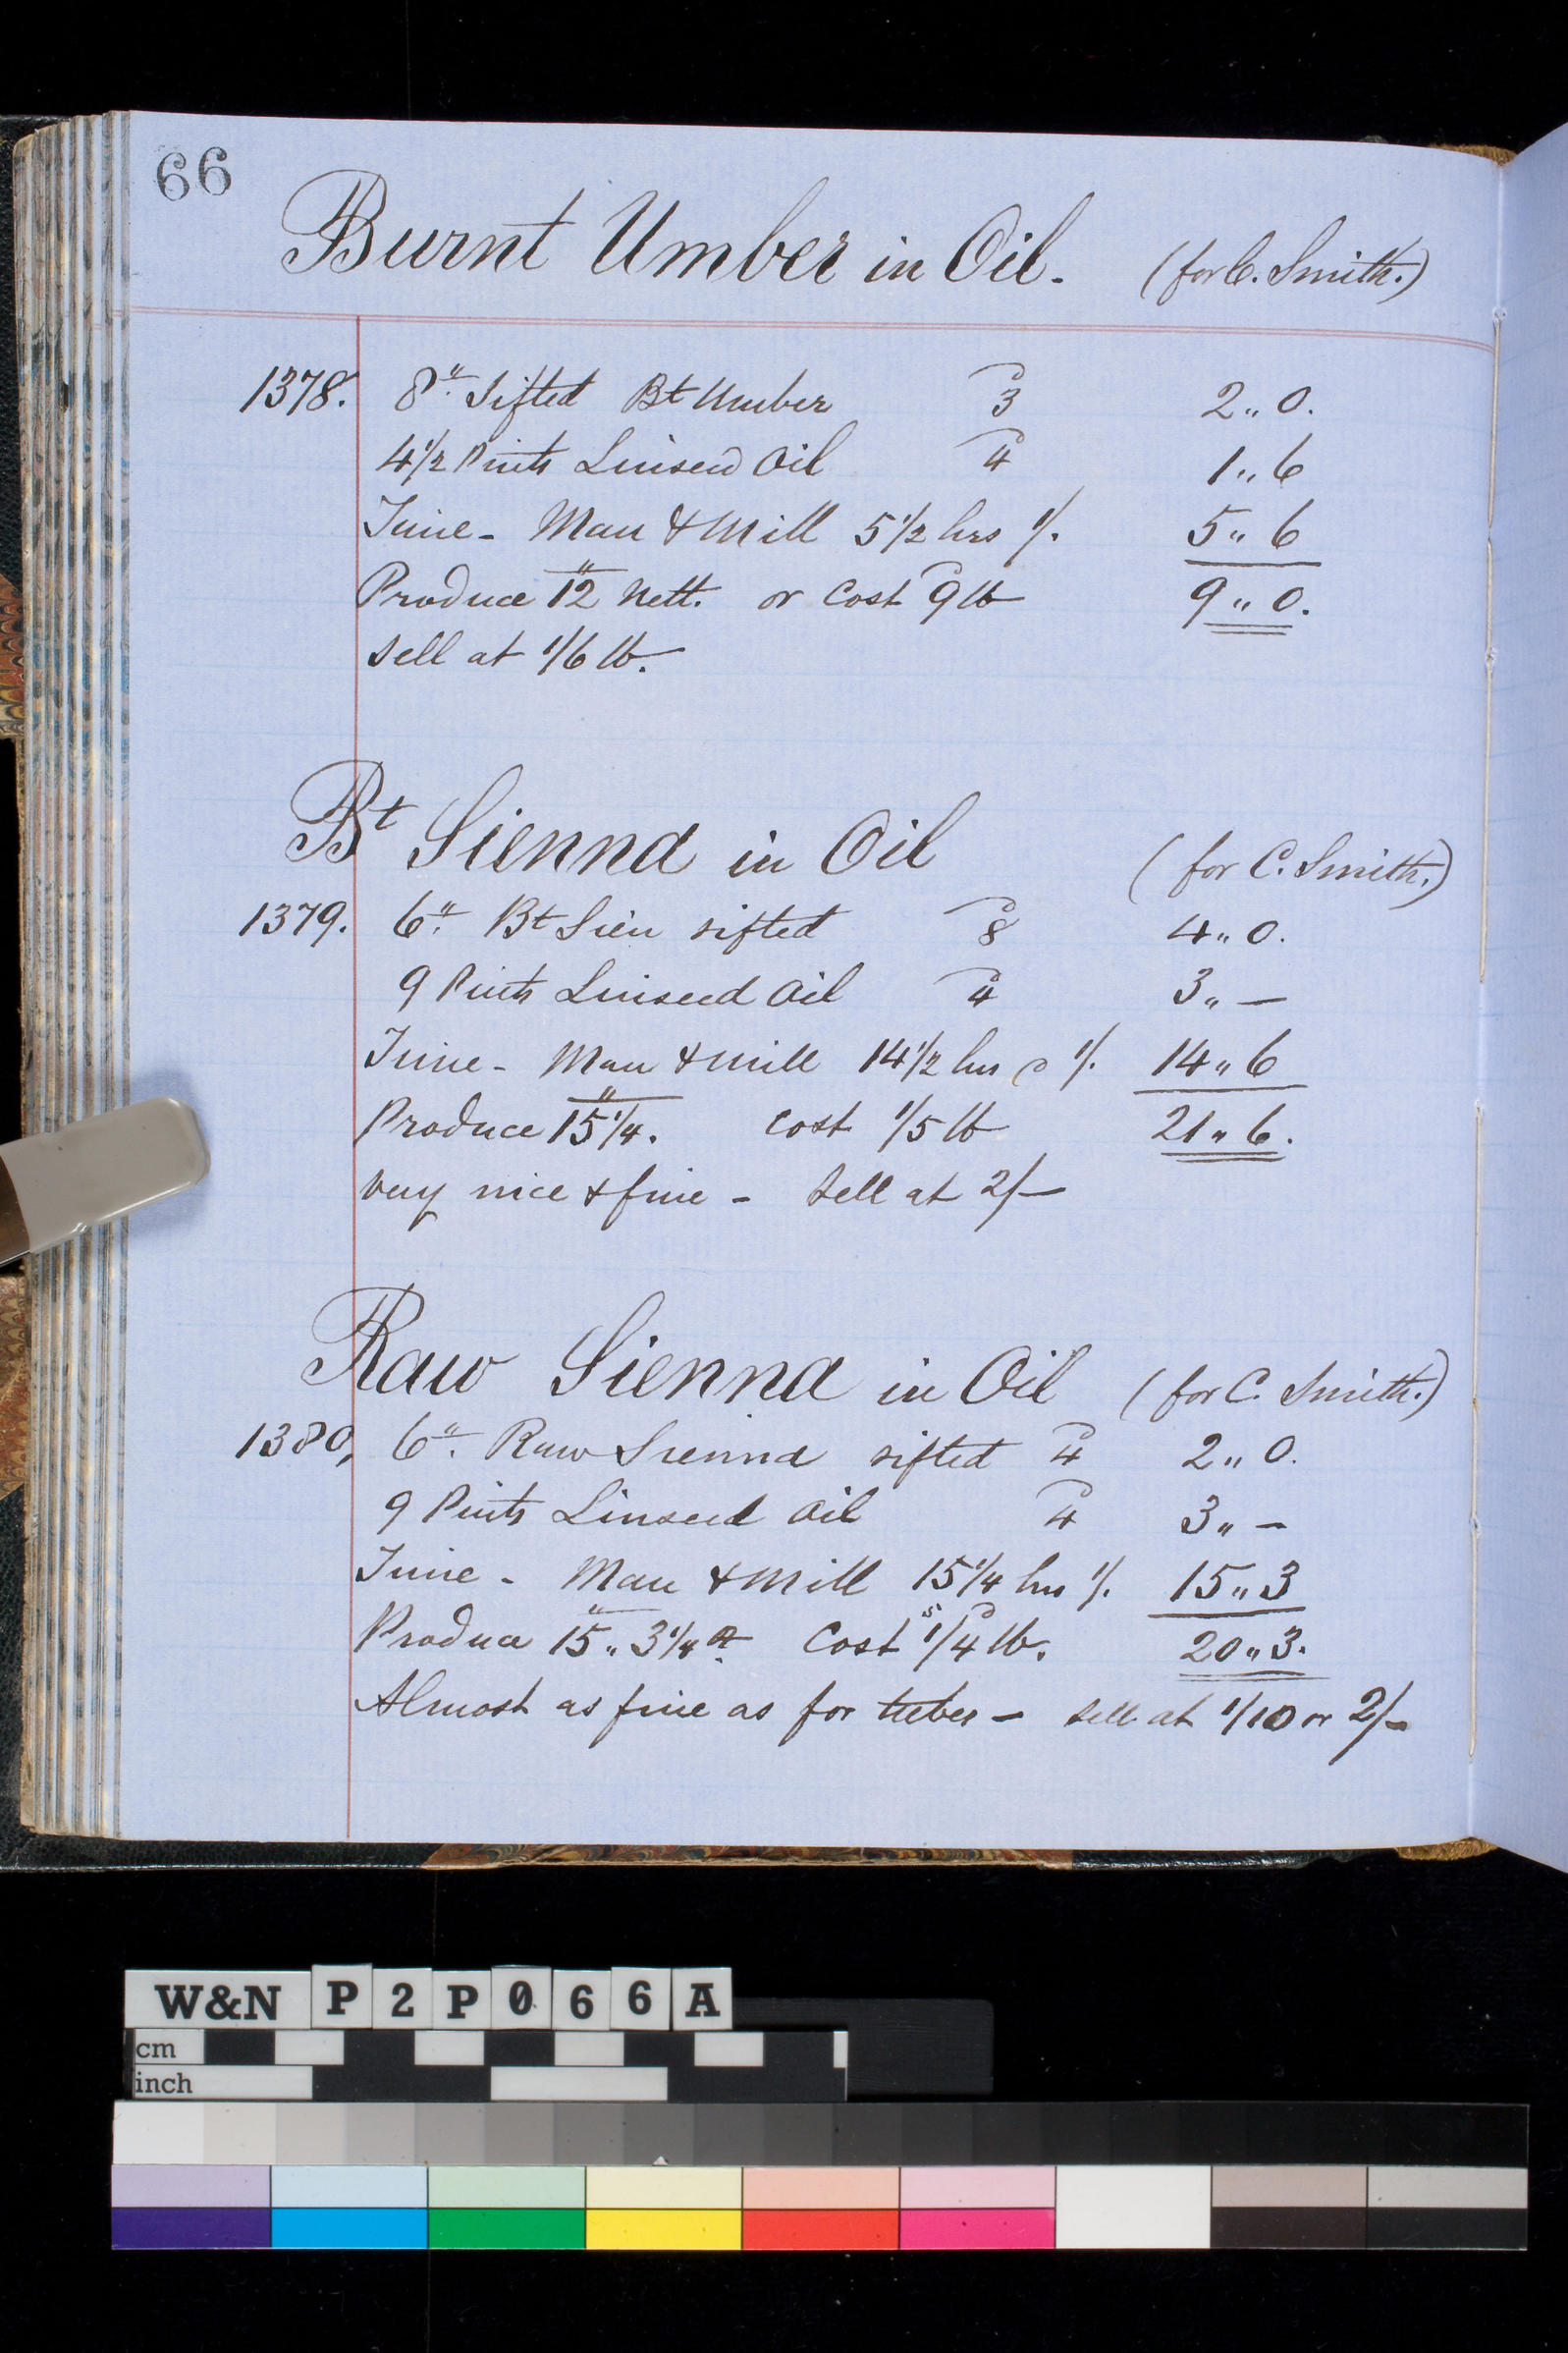 66
Burnt Umber in Oil. (for C. Smith.)
1378. 8" Sifted Bt Umber 3 2 " 0.
4 1/2 Pints Linseed Oil 4 1 " 6
Time - Man & Mill 5 1/2 hrs 1/. 5 " 6
Produce 12" nett. or Cost 9 lb 9 " 0.
Sell at 1/6 lb.
Bt Sienna in Oil (for C. Smith.)
1379. 6". Bt Sien sifted 8 4 " 0.
9 Pints Linseed Oil 4 3 " —
Time - Man & Mill 14 1/2 hrs @ 1/. 14 " 6
Produce 15 1/4". Cost 1/5 lb 21 " 6.
Very nice & fine - Sell at 2/—
Raw Sienna in Oil (for C. Smith.)
1380, 6". Raw Sienna sifted 4 2 " 0.
9 Pints Linseed Oil 4 3 " —
Time - Man & Mill 15 1/4 hrs 1/. 15 " 3
Produce 15 " 3 1/4 Cost 1/4 lb. 20 " 3.
Almost as fine as for tubes — Sell at 1/10 or 2/-
W&N P2P066A
cm
inch